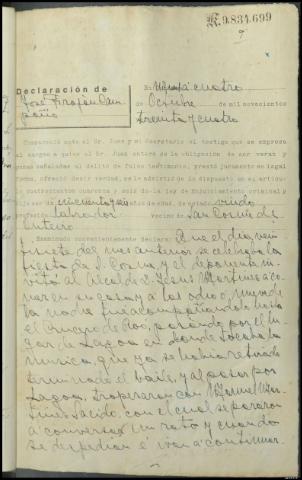 K.9.834.699
Declaración de
José Pirajan Cam-
paño
En Meira á cuatro
de Octubre de mil novecientos
treinta y cuatro
Compareció ante el Sr. Juez y mi Secretario el testigo que se expresa
al margen a quien el Sr. Juez enteró de la obligación de ser veraz y
penas señaladas al delito de falso testimonio, prestó juramento en legal
forma, ofreció decir verdad, se le advirtió de lo dispuesto en el artículo
cuatrocientos cuarenta y seis de la ley de Enjuiciamiento criminal y
dijo ser de cincuenta y seis años de edad, de estado viudo
profesión labrador vecino de San Cosme de
Outeiro
Examinado convenientemente declara: Que el dia vein
tisiete del mes anterior se celebraba la
fiesta de S. Cosme, y el deponente in
vitó al Alcalde D. Jesus Martinez a ce-
nar en su casa, y a las doce de
la noche fue acompañandolo hasta
el Crucero de Roo, pasando por el lu-
gar de Lagoa en donde tocaba la
musica, que ya se habia retirado
terminado el baile, y al pasar por
Lagoa, tropezaron con Manuel Mar-
tinez Sacido, con el cual se pararon
a conversar un rato y cuando
se despedian é ivan a continuar